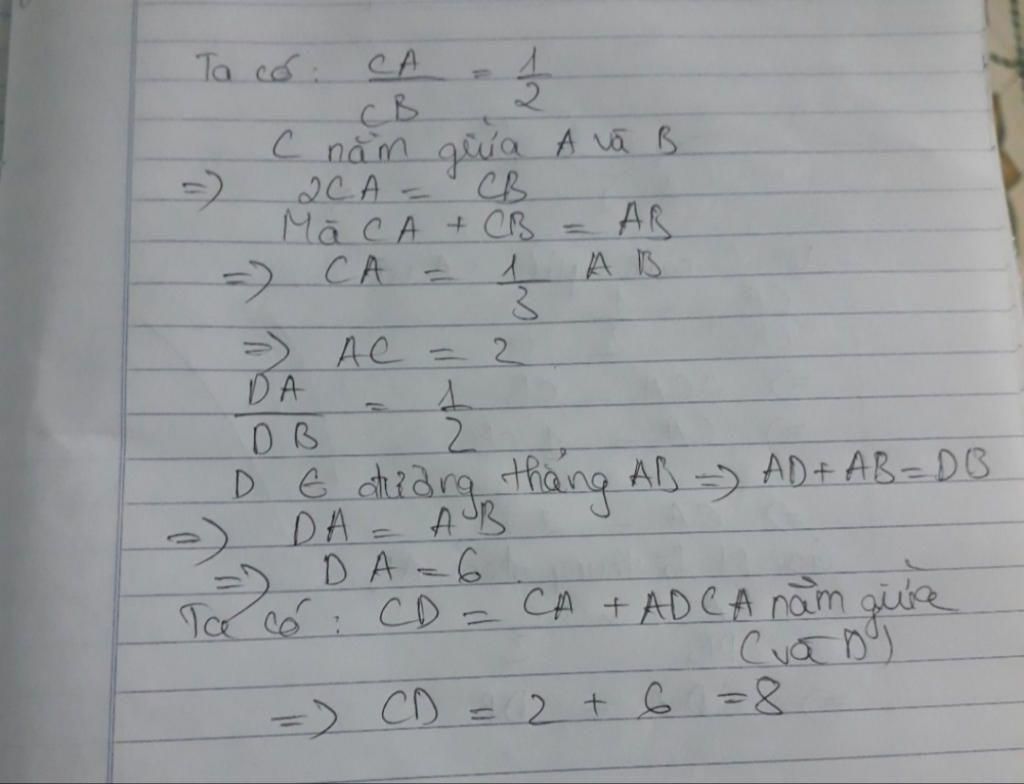 Ta có: CA/CB = 1/2
C nằm giữa A và B
=> 2CA = CB
Mà CA + CB = AB
=> CA = 1/3 AB
=> AC = 2
DA/DB = 1/2
D ∈ đường thẳng AB => AD + AB = DB
=> DA = AB
=> DA = 6.
Ta có: CD = CA + AD (A nằm giữa
C và D)
=> CD = 2 + 6 = 8